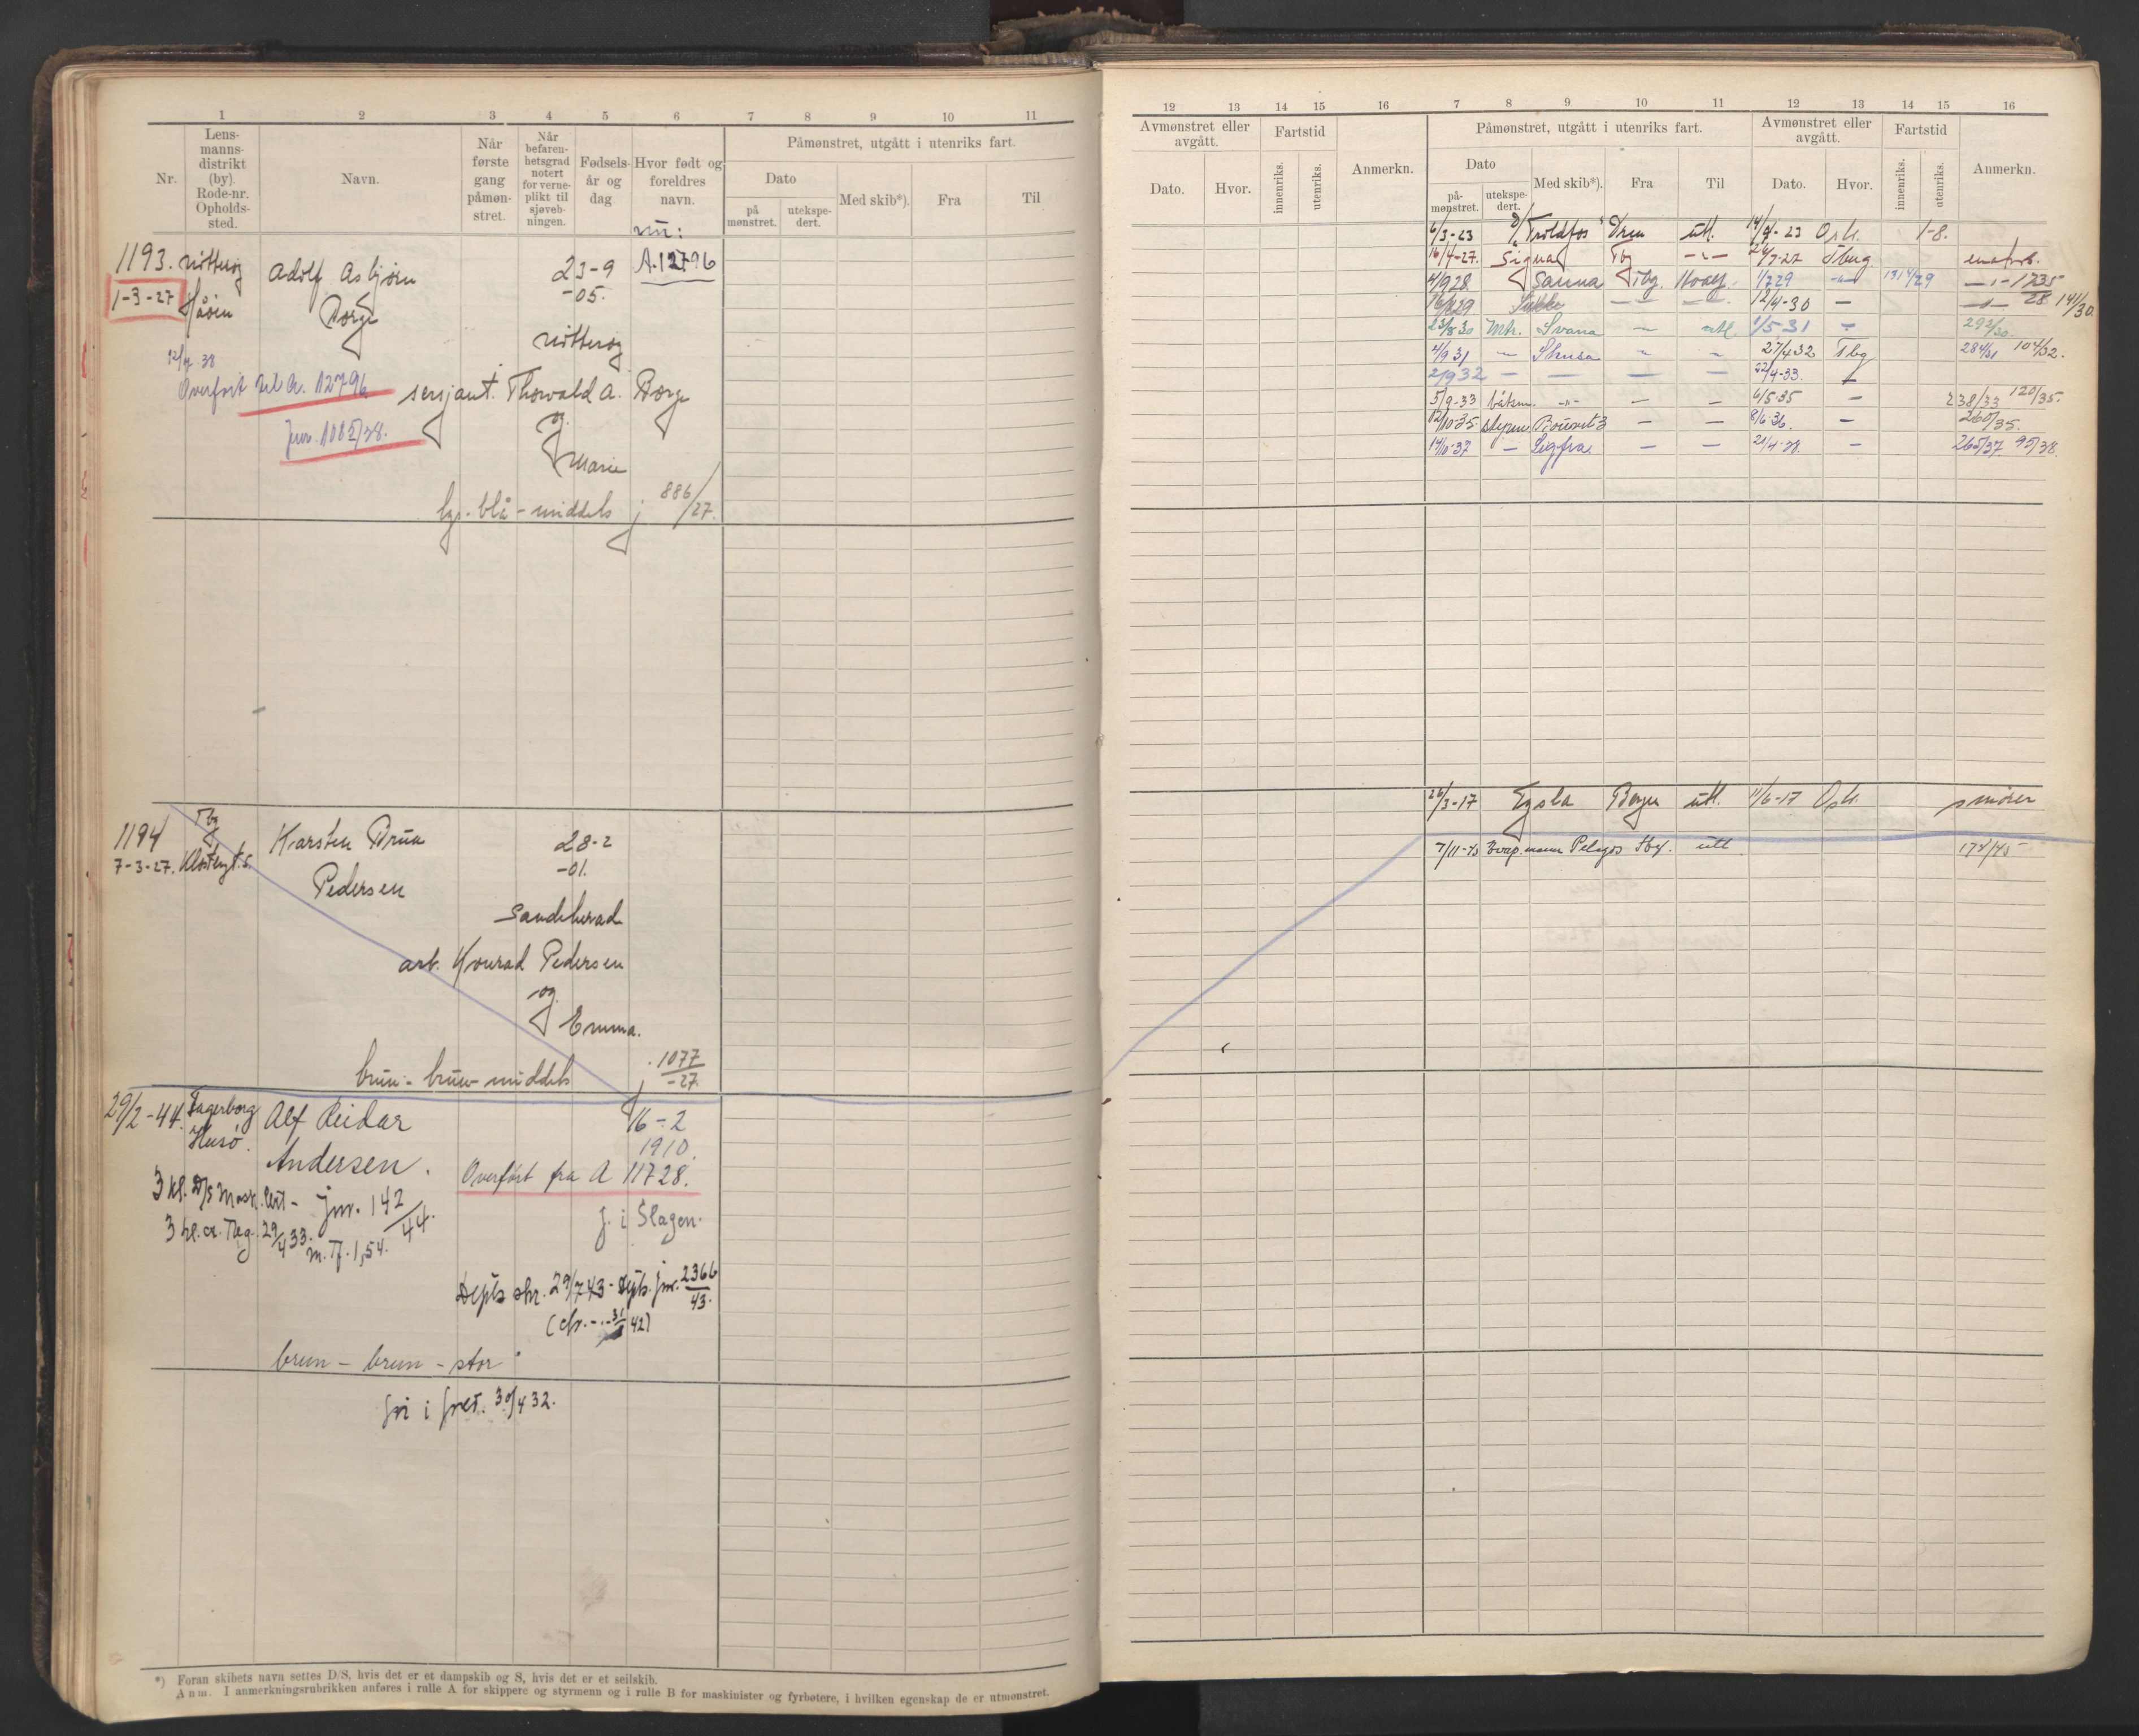 1 2 3 4 5 6 7 8 9 10 11
Nr.
Lens-
manns-
distrikt
(by).
Rode-nr.
Opholds-
sted.
Navn.
Når
første
gang
påmøn-
stret.
Når
befaren-
hetsgrad
notert
for verne-
plikt til
sjøveb-
ningen.
Fødsels-
år og
dag
Hvor født og
foreldres
navn.
Påmønstret, utgått i utenriks fart.
Dato
på
mønstret.
utekspe-
dert.
Med skib*).
Fra
Til
nu:
1193. Nøtterøy Adolf Asbjørn 23-9 A.12796
1-3-27 Borge -05.
Nøtterøy
12/4-38
Overført til A. 12796
sersjant. Thorvald A. Borge
jnr. 1082/38.
og
Marie
lys - blå - middels j 886/27.
Tbg
1194 Karsten Brun 28-2
7-3-27. Pedersen -01.
Sandeherad
arb. Konrad Pedersen
og
Emma.
brun - brun - middels j 1077/-27.
29/2-44. Fagerborg Alf Reidar 16-2
Husø. 1910.
Andersen.
Overført fra A 11728.
3 kl. D/S Mask. Cert - jnr. 142/44.
j. i Slagen.
3 kl. a. Tbg. 29/4 33. m. Tf. 1,54.
Depts skr. 29/7 43 - Depts. jnr. 2366/43.
brun - brun - stor
fri i fred. 30/4 32.
*) Foran skibets navn settes D/S, hvis det er et dampskib og S, hvis det er et seilskib.
Anm. I anmerkningsrubrikken anføres i rulle A for skippere og styrmenn og i rulle B for maskinister og fyrbøtere, i hvilken egenskap de er utmønstret.
12 13 14 15 16 7 8 9 10 11 12 13 14 15 16
Avmønstret eller
avgått.
Dato.
Hvor.
Fartstid
innenriks.
utenriks.
Anmerkn.
Påmønstret, utgått i utenriks fart.
Dato
på-
mønstret.
utekspe-
dert.
Med skib*).
Fra
Til
Avmønstret eller
avgått.
Dato.
Hvor.
Fartstid
innenriks.
utenriks.
Anmerkn.
6/3-23 "Troldfos" Drm utl. 14/9-23 1-8.
16/4-27. Signal Tbg -"-
4/9 28. Sanna Tbg. 1/7 29 131 4/29
12/4-30 — 141/30.
23/8 30 Mtr. Svana — utl. 1/5-31 —
4/9 31 — — — 27/4 32 Tbg 284/31 104/32.
2/9 32 — — — — 22/4-33. —
5/9-33 båtsm. -"- — — 6/5-35 — 238/33 120/35.
12/10-35 — — 8/6-36. — 260/35.
14/10-37 — Sigfra. — — 21/4-38. — 265/37 95/38.
26/3-17 Tysla Bergen utl. 11/6-17 smører
7/11-45 Pelagos utl 174/45